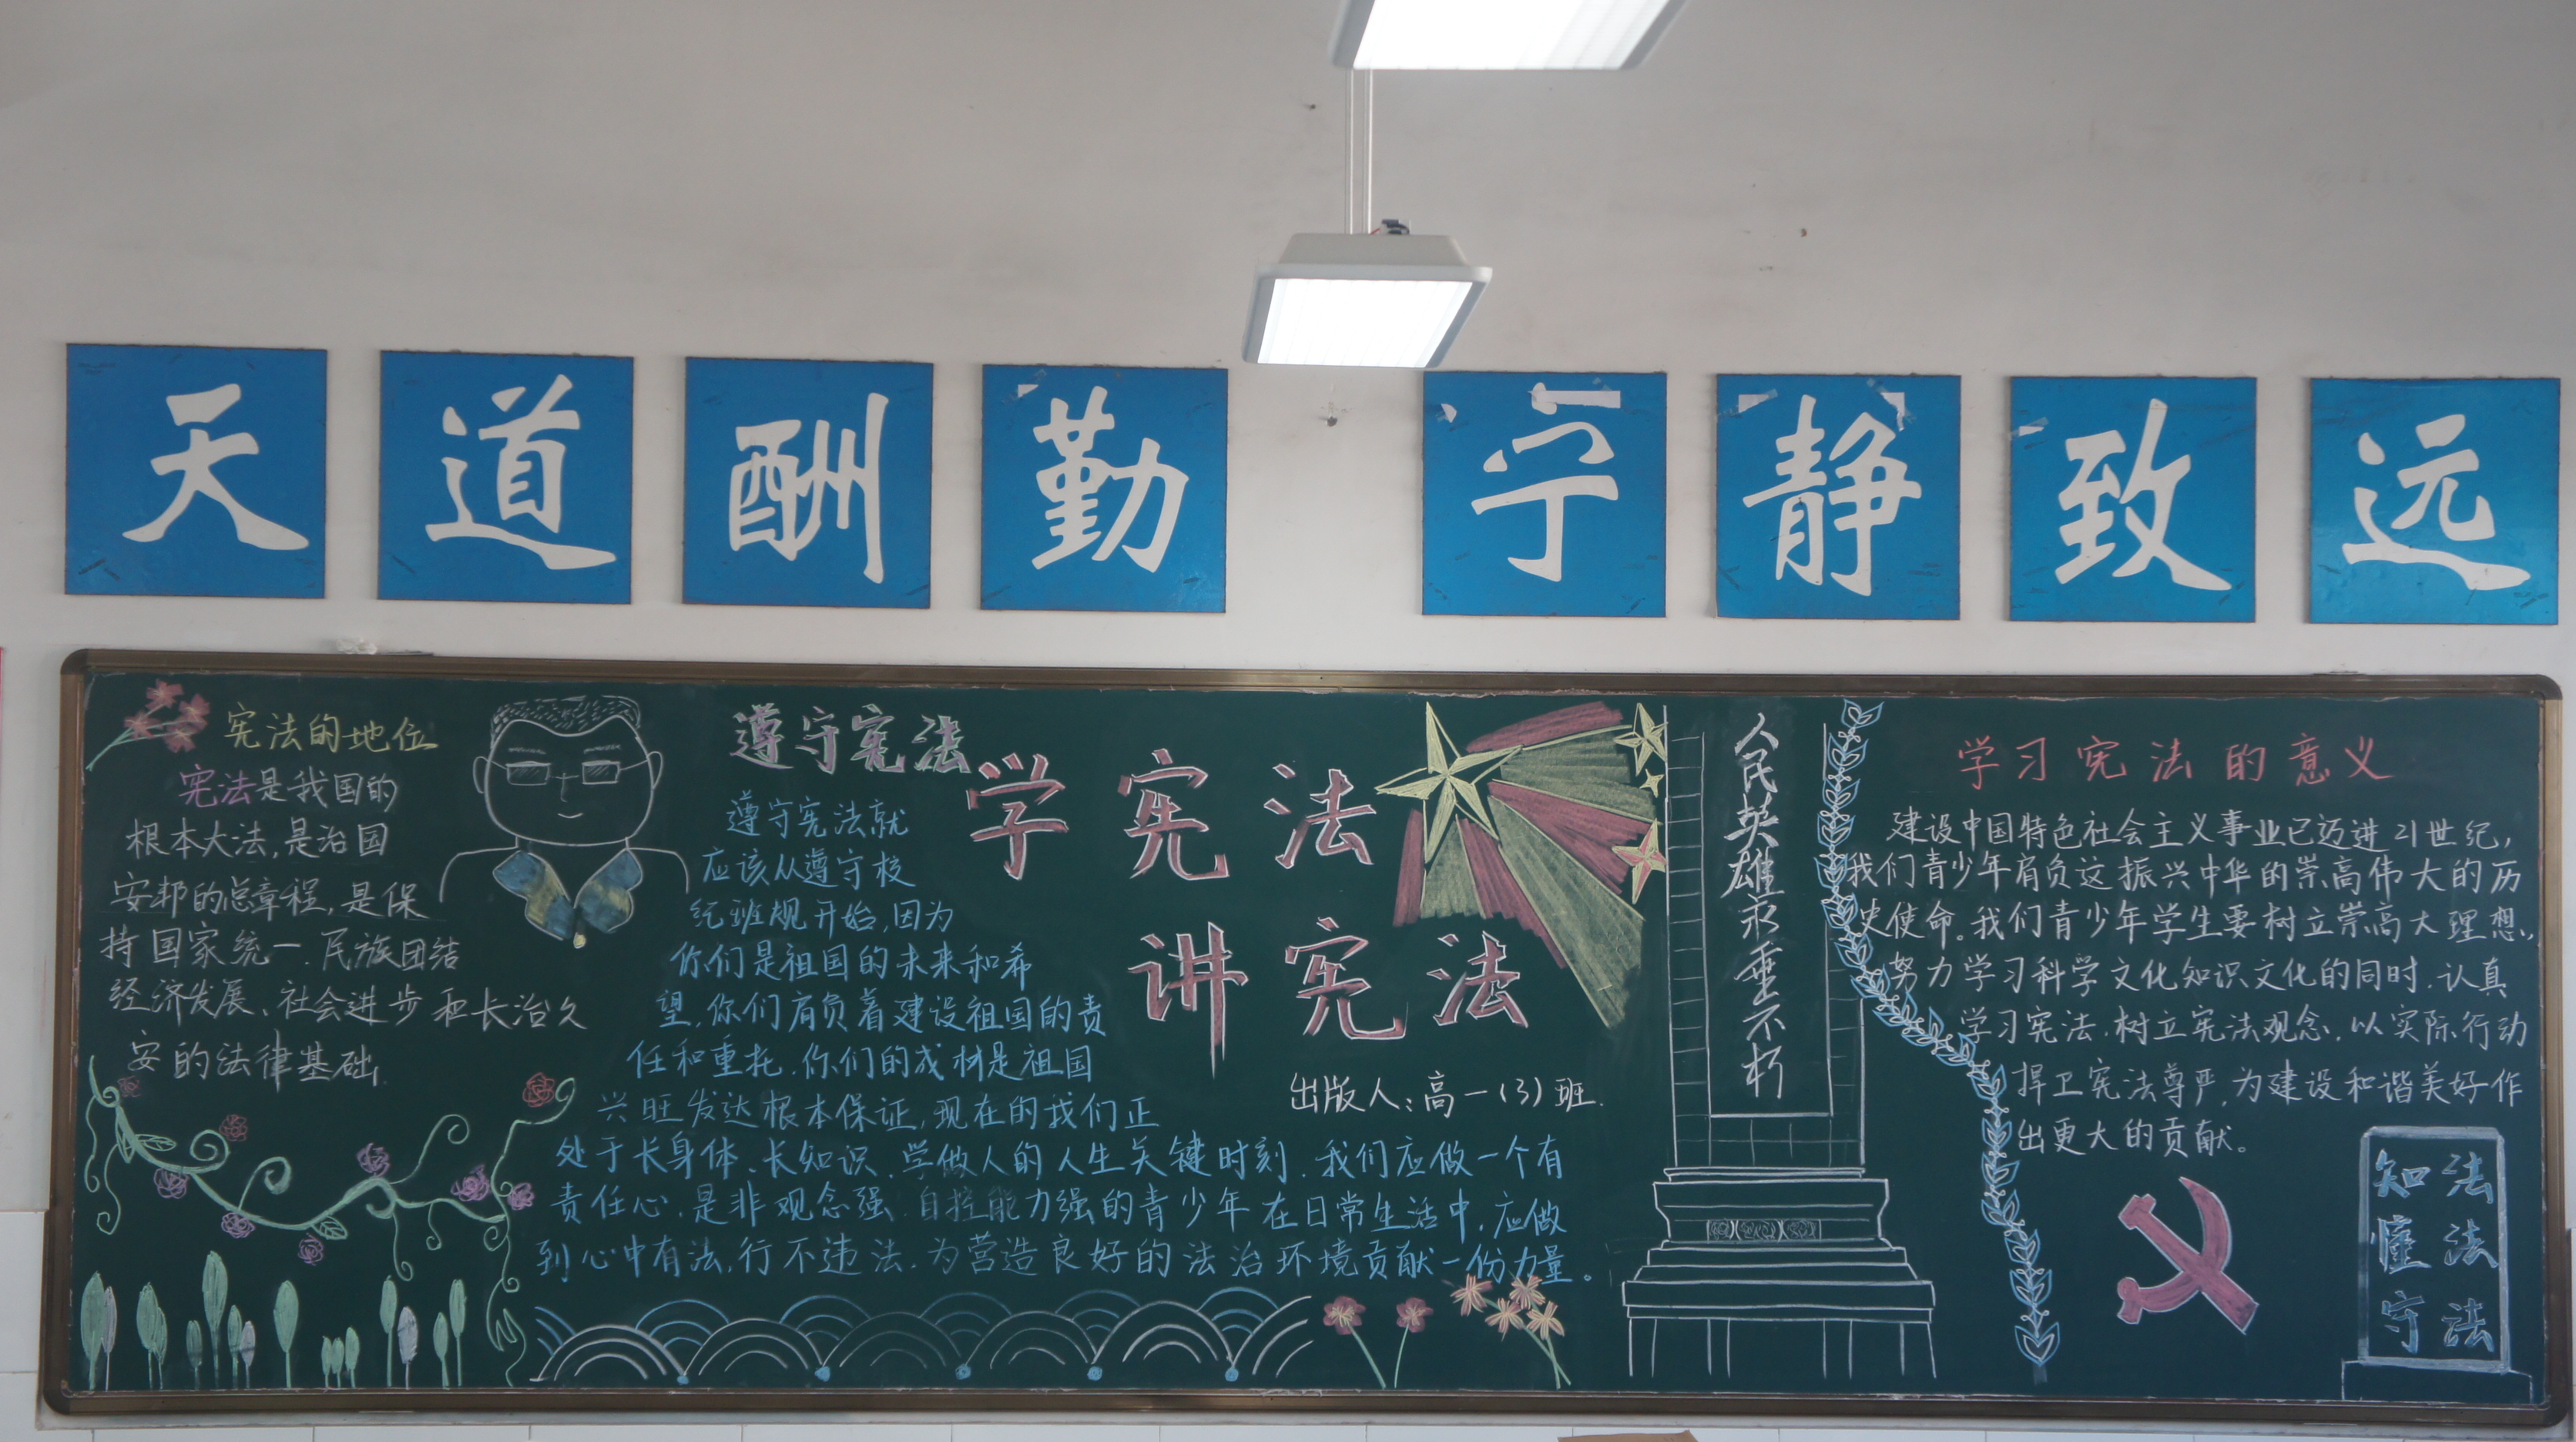 天道酬勤 宁静致远
宪法的地位
宪法是我国的
根本大法,是治国
安邦的总章程,是保
持国家统一.民族团结
经济发展、社会进步和长治久
安的法律基础.
遵守宪法
遵守宪法就
应该从遵守校
纪班规开始,因为
你们是祖国的未来和希
望,你们肩负着建设祖国的责
任和重托.你们的成材是祖国
兴旺发达根本保证,现在的我们正
处于长身体、长知识.学做人的人生关键时刻.我们应做一个有
责任心.是非观念强.自控能力强的青少年在日常生活中,应做
到心中有法,行不违法.为营造良好的法治环境贡献一份力量。
学宪法
讲宪法
出版人:高一(3)班.
人民英雄永垂不朽
学习宪法的意义
建设中国特色社会主义事业已迈进21世纪,
我们青少年肩负这振兴中华的崇高伟大的历
史使命。我们青少年学生要树立崇高大理想,
努力学习科学文化知识文化的同时.认真
学习宪法.树立宪法观念.以实际行动
捍卫宪法尊严,为建设和谐美好作
出更大的贡献。
知法
懂法
守法